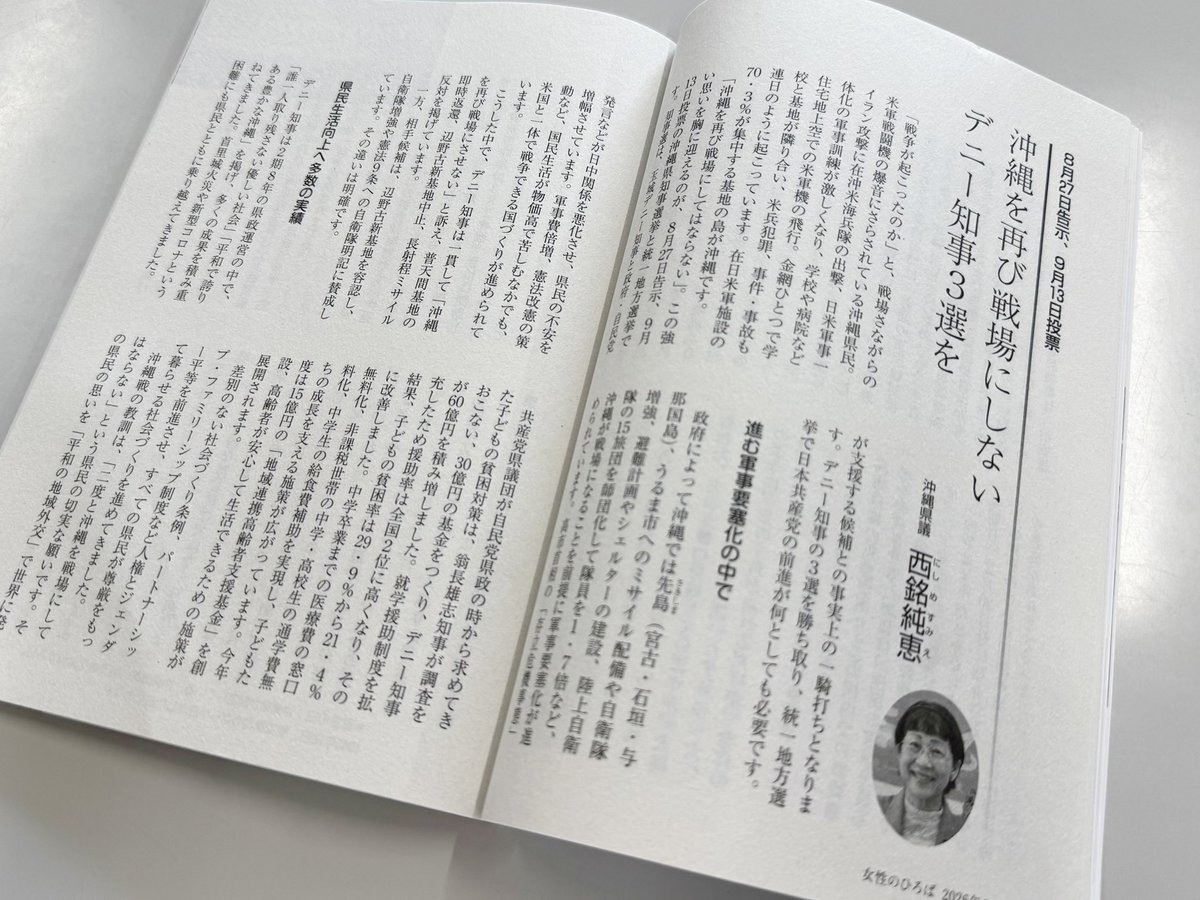 8月27日告示、9月13日投票
沖縄を再び戦場にしない
デニー知事3選を
沖縄県議
西銘純恵
にしめ すみえ
「戦争が起こったのか」と、戦場さながらの
米軍戦闘機の爆音にさらされている沖縄県民。
イラン攻撃に在沖米海兵隊の出撃、日米軍事一
体化の軍事訓練が激しくなり、学校や病院など
住宅地上空での米軍機の飛行。金網ひとつで学
校と基地が隣り合い、米兵犯罪、事件・事故も
連日のように起こっています。在日米軍施設の
70・3%が集中する基地の島が沖縄です。
「沖縄を再び戦場にしてはならない」。この強
い思いを胸に迎えるのが、8月27日告示、9月
13日投票の沖縄県知事選挙と統一地方選挙で
す。知事選は、玉城デニー知事と政府・自民党
が支援する候補との事実上の一騎打ちとなりま
す。デニー知事の3選を勝ち取り、統一地方選
挙で日本共産党の前進が何としても必要です。
進む軍事要塞化の中で
政府によって沖縄では先島（宮古・石垣・与
さきしま
那国島）、うるま市へのミサイル配備や自衛隊
増強、避難計画やシェルターの建設、陸上自衛
隊の15旅団を師団化して隊員を1・7倍など、
沖縄が戦場になることを前提に軍事要塞化が進
められています。高市首相の「存立危機事態」
発言などが日中関係を悪化させ、県民の不安を
増幅させています。軍事費倍増、憲法改憲の策
動など、国民生活が物価高で苦しむなかでも、
米国と一体で戦争できる国づくりが進められて
います。
こうした中で、デニー知事は一貫して「沖縄
を再び戦場にさせない」と訴え、普天間基地の
即時返還、辺野古新基地中止、長射程ミサイル
反対を掲げています。
一方、相手候補は、辺野古新基地を容認し、
自衛隊増強や憲法9条への自衛隊明記に賛成し
ています。その違いは明確です。
県民生活向上へ多数の実績
デニー知事は2期8年の県政運営の中で、
「誰一人取り残さない優しい社会」「平和で誇り
ある豊かな沖縄」を掲げ、多くの成果を積み重
ねてきました。首里城火災や新型コロナという
困難にも県民とともに乗り越えてきました。
共産党県議団が自民党県政の時から求めてき
た子どもの貧困対策は、翁長雄志知事が調査を
おこない、30億円の基金をつくり、デニー知事
が60億円を積み増しました。就学援助制度を拡
充したため援助率は全国2位に高くなり、その
結果、子どもの貧困率は29・9%から21・4%
に改善しました。中学卒業までの医療費の窓口
無料化、非課税世帯の中学・高校生の通学費無
料化、中学生の給食費補助を実現し、子どもた
ちの成長を支える施策が広がっています。今年
度は15億円の「地域連携高齢者支援基金」を創
設、高齢者が安心して生活できるための施策が
展開されます。
差別のない社会づくり条例、パートナーシッ
プ・ファミリーシップ制度など人権とジェンダ
ー平等を前進させ、すべての県民が尊厳をもっ
て暮らせる社会づくりを進めてきました。
沖縄戦の教訓は、「二度と沖縄を戦場にして
はならない」という県民の切実な願いです。そ
の県民の思いを「平和の地域外交」で世界に発
女性のひろば 2026年